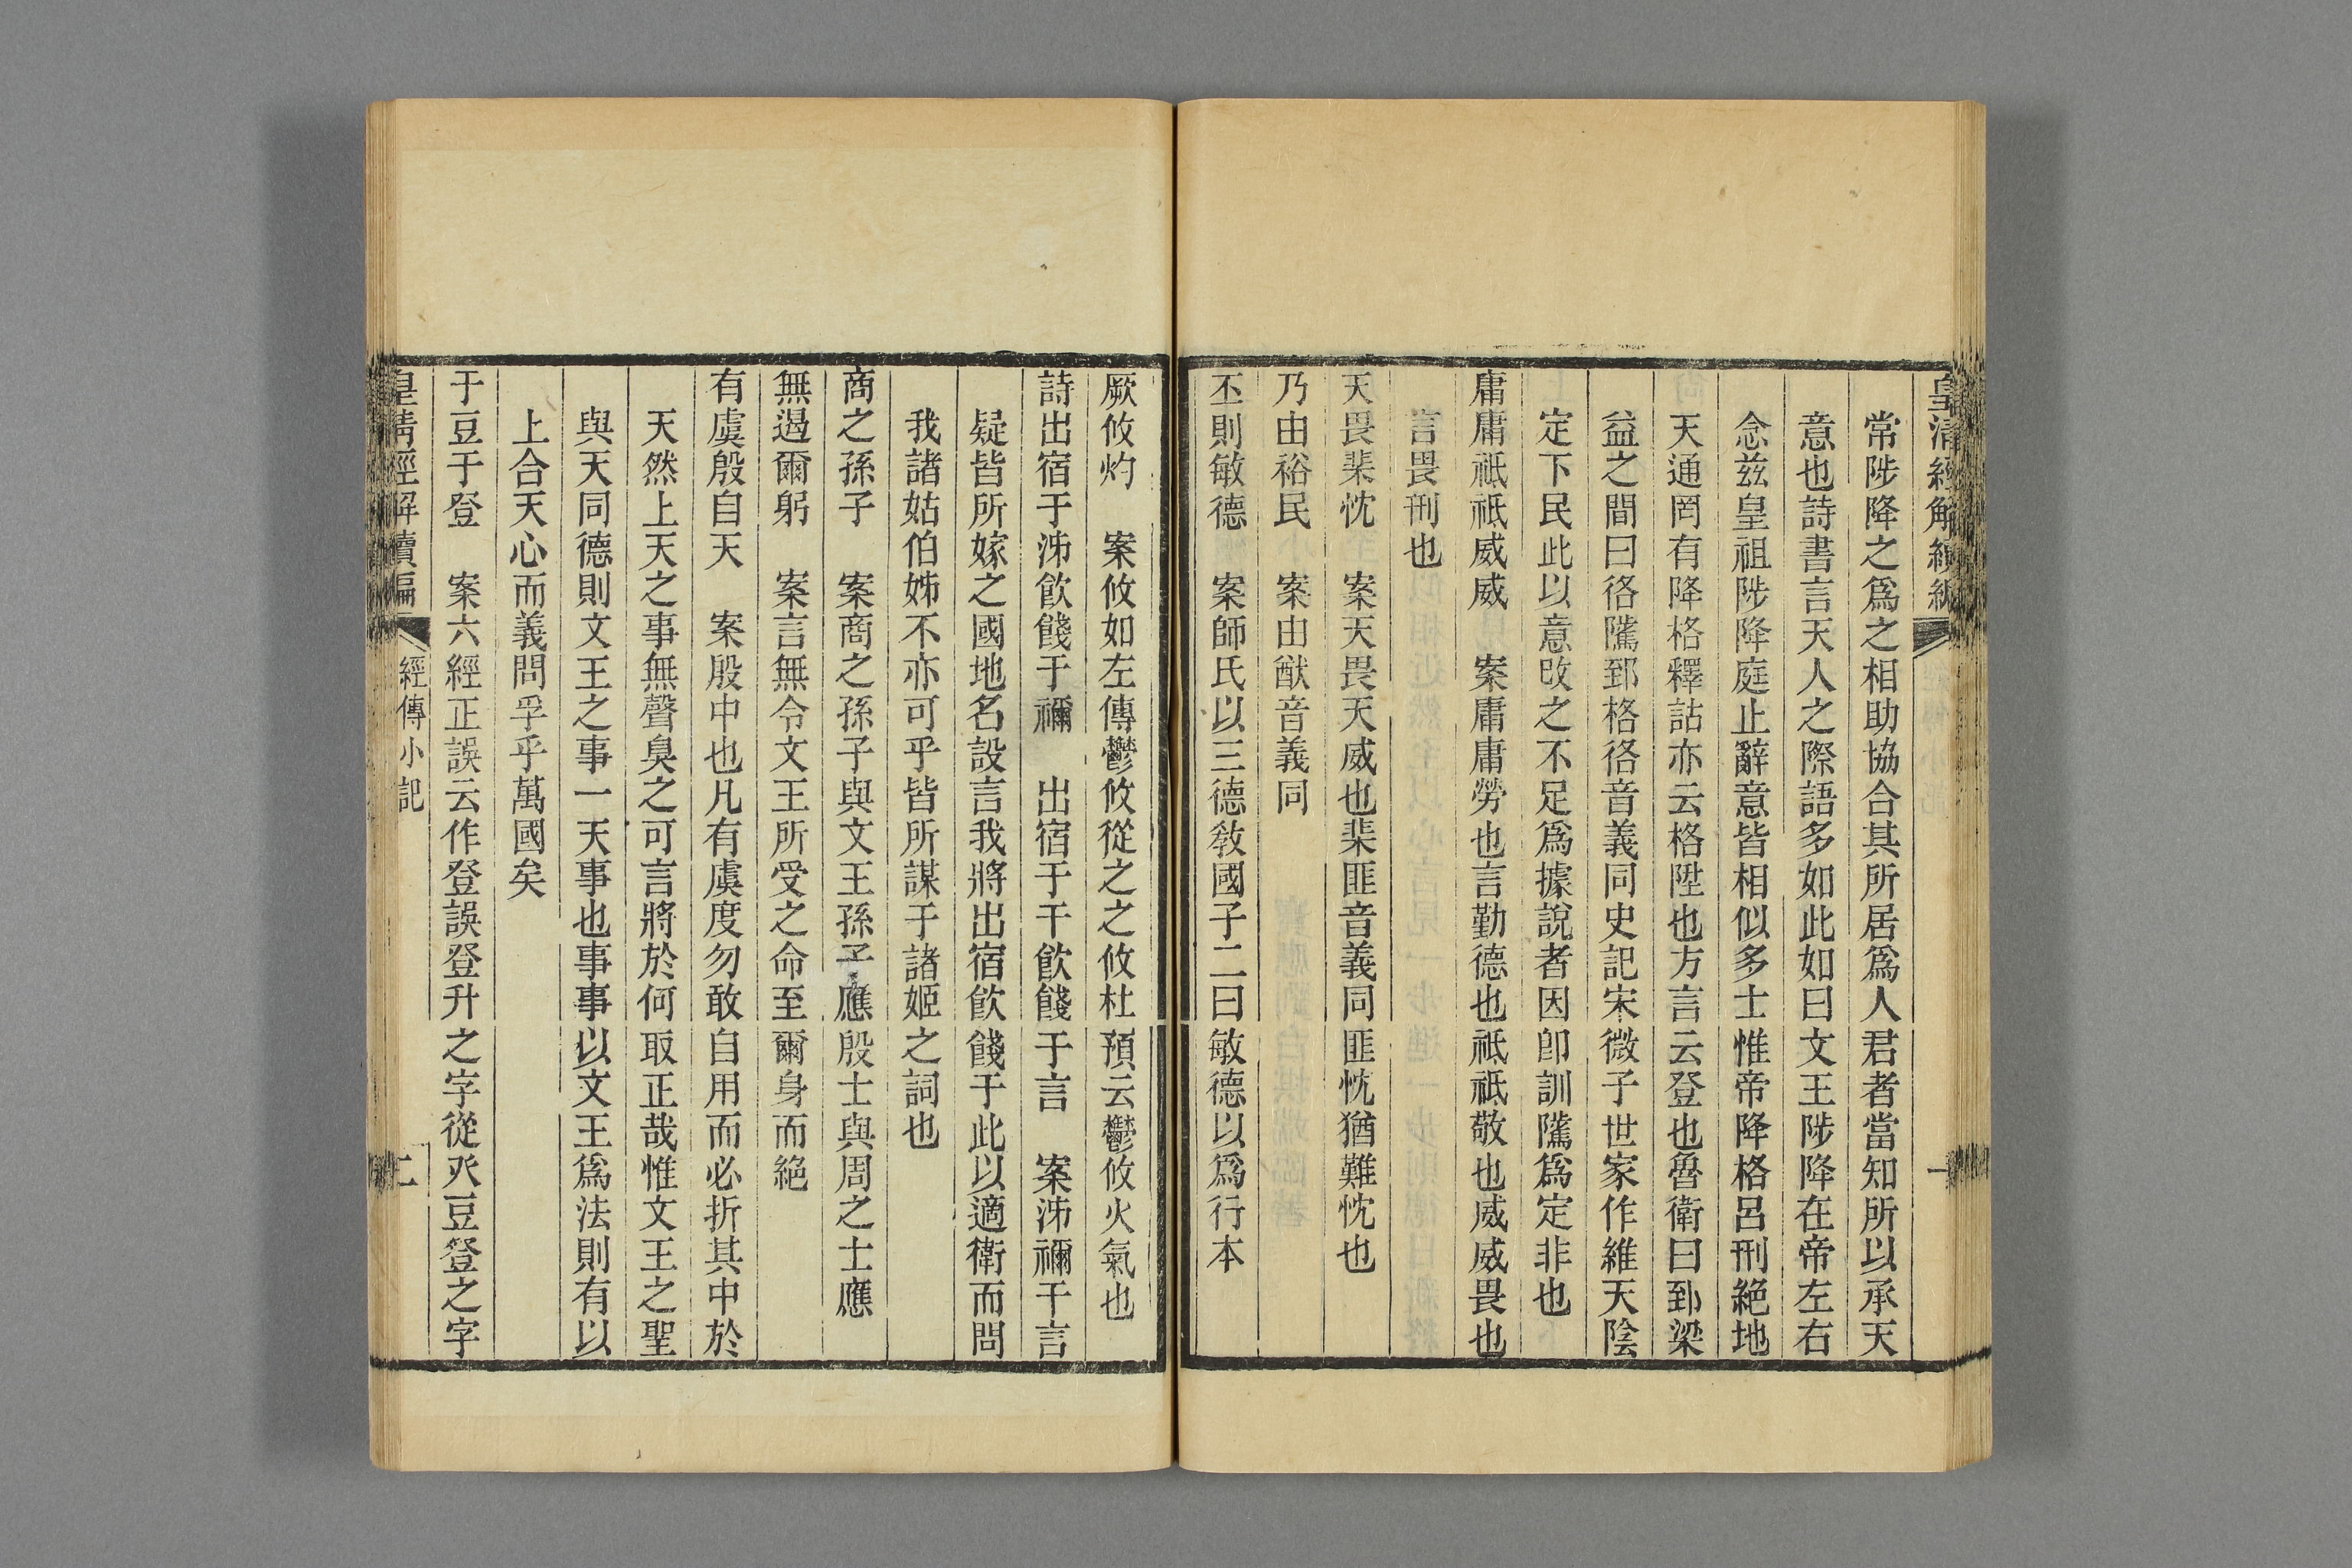 皇清經解續編
一
常陟降之爲之相助協合其所居爲人君者當知所以承天
意也詩書言天人之際語多如此如曰文王陟降在帝左右
念茲皇祖陟降庭止辭意皆相似多士惟帝降格呂刑絕地
天通罔有降格釋詁亦云格陞也方言云登也魯衛曰郅梁
益之間曰㣟隲郅格㣟音義同史記宋微子世家作維天陰
定下民此以意改之不足爲據說者因卽訓隲爲定非也
庸庸祗祗威威　案庸庸勞也言勤德也祗祗敬也威威畏也
言畏刑也
天畏棐忱　案天畏天威也棐匪音義同匪忱猶難忱也
乃由裕民　案由猷音義同
丕則敏德　案師氏以三德敎國子二曰敏德以爲行本
厥攸灼　案攸如左傳鬱攸從之之攸杜預云鬱攸火氣也
詩出宿于泲飮餞于禰　出宿于干飮餞于言　案泲禰干言
疑皆所嫁之國地名設言我將出宿飮餞于此以適衛而問
我諸姑伯姊不亦可乎皆所謀于諸姬之詞也
商之孫子　案商之孫子與文王孫子應殷士與周之士應
無遏爾躬　案言無令文王所受之命至爾身而絕
有虞殷自天　案殷中也凡有虞度勿敢自用而必折其中於
天然上天之事無聲臭之可言將於何取正哉惟文王之聖
與天同德則文王之事一天事也事事以文王爲法則有以
上合天心而義問孚乎萬國矣
于豆于登　案六經正誤云作登誤登升之字從癶豆登之字
皇清經解續編
經傳小記
二